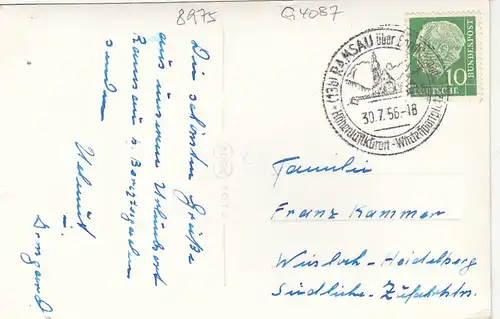 8975
G4087
Die schönsten Grüße
aus unserem Urlaubsort
Ramsau b. Berchtesgaden
senden
Helmut
u.
Irmgard
(13b) RAMSAU über
30.7.56-18
Höhenluftkurort
10
DEUTSCHE
BUNDESPOST
Familie
Franz Kammer
Wiesloch-Heidelberg
Südliche-Zufahrtstr.